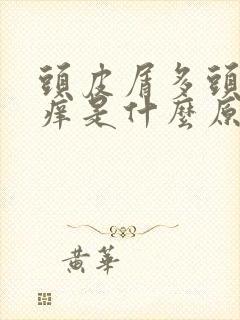 頭皮屑多頭
癢是什麼原
黃華